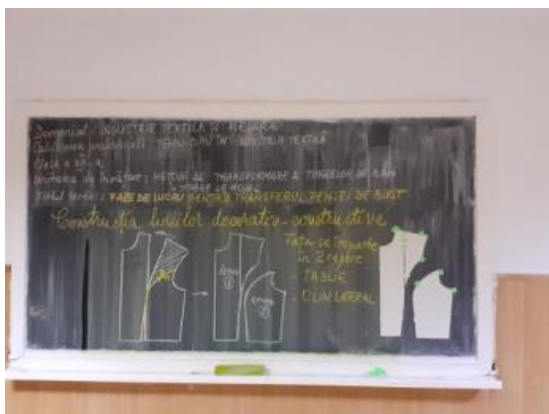 Domeniul: INDUSTRIE TEXTILĂ ȘI PIELĂRIE
Calificarea profesională: TEHNICIAN ÎN INDUSTRIA TEXTILĂ
Clasa a XI-a
Unitatea de învățare: METODE DE TRANSFORMARE A TIPARELOR DE BAZĂ
ÎN TIPARE DE MODEL
Titlul lecției: FAZE DE LUCRU PENTRU TRANSFERUL PENSEI DE BUST
Construcția liniilor decorativ-constructive
Fața se împarte
în 2 repere
- TABLIE
- CLIN LATERAL